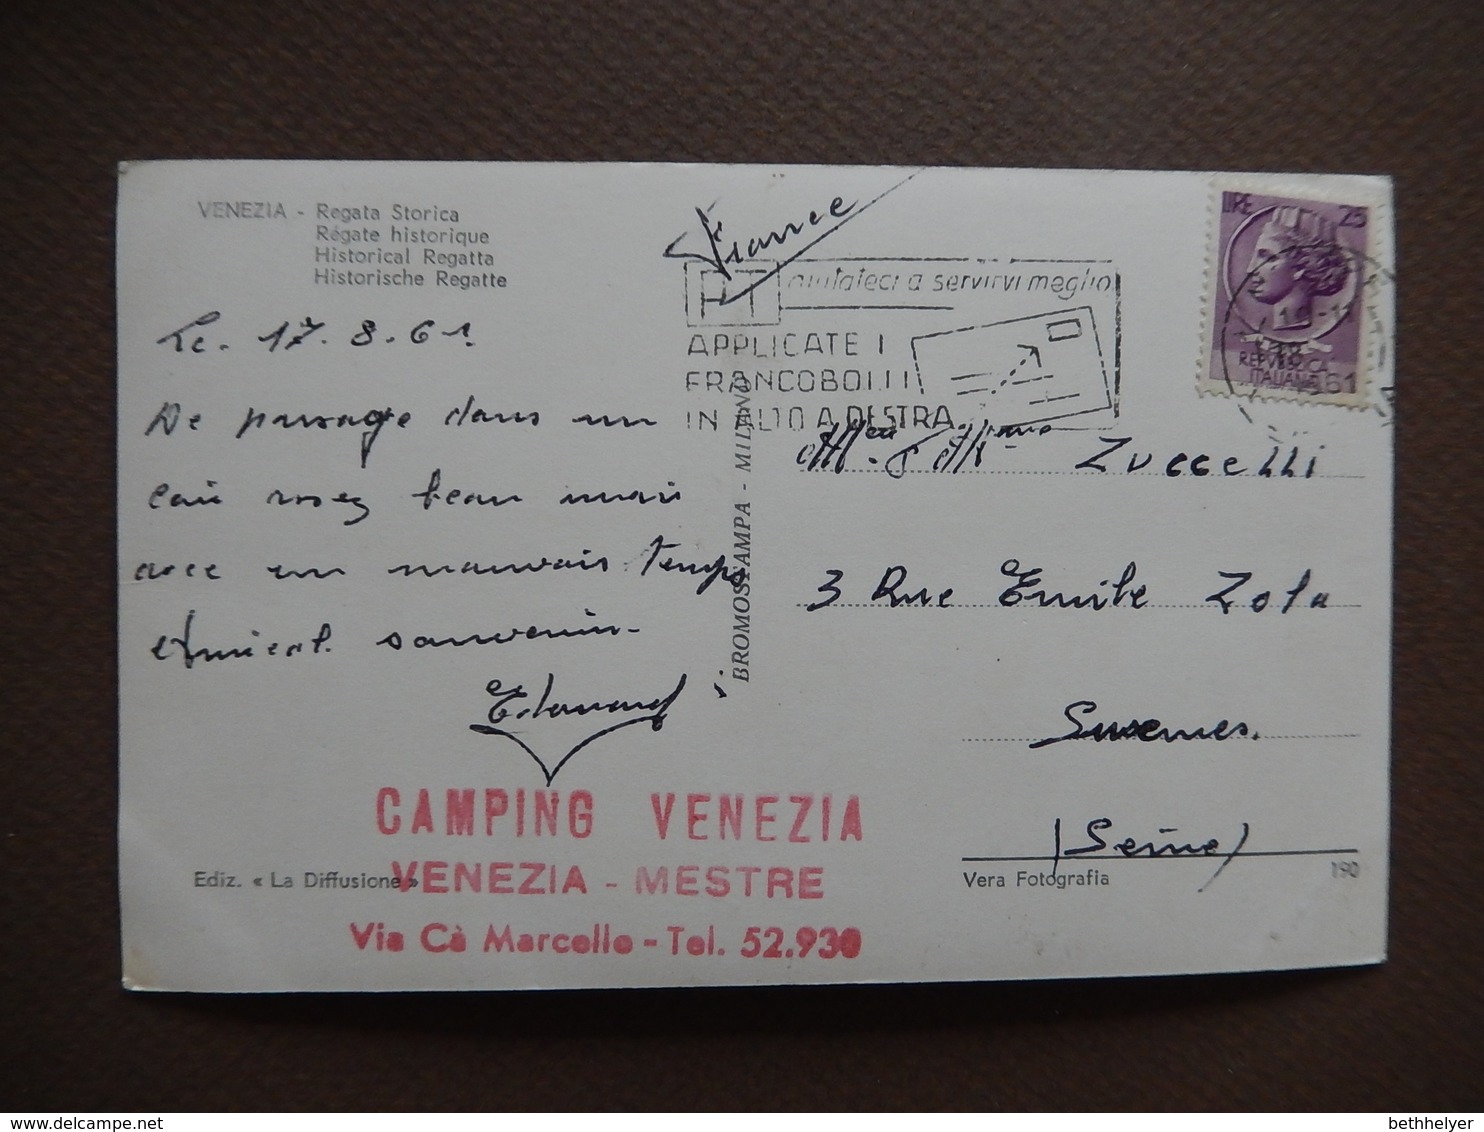 VENEZIA - Regata Storica
Régate historique
Historical Regatta
Historische Regatte
Le. 17. 8. 61.
De passage dans un
coin assez beau mais
avec un mauvais temps
Amical souvenir.
Edouard
CAMPING VENEZIA
VENEZIA - MESTRE
Via Cà Marcello - Tel. 52.930
Ediz. « La Diffusione»
BROMOSTAMPA - MILANO
France
PT aiutateci a servirvi meglio
APPLICATE I
FRANCOBOLLI
IN ALTO A DESTRA
LIRE 25
REPVBBLICA
ITALIANA
1961
Zuccelli
3 Rue Emile Zola
Suresnes.
(Seine)
Vera Fotografia
190
bethhelyer